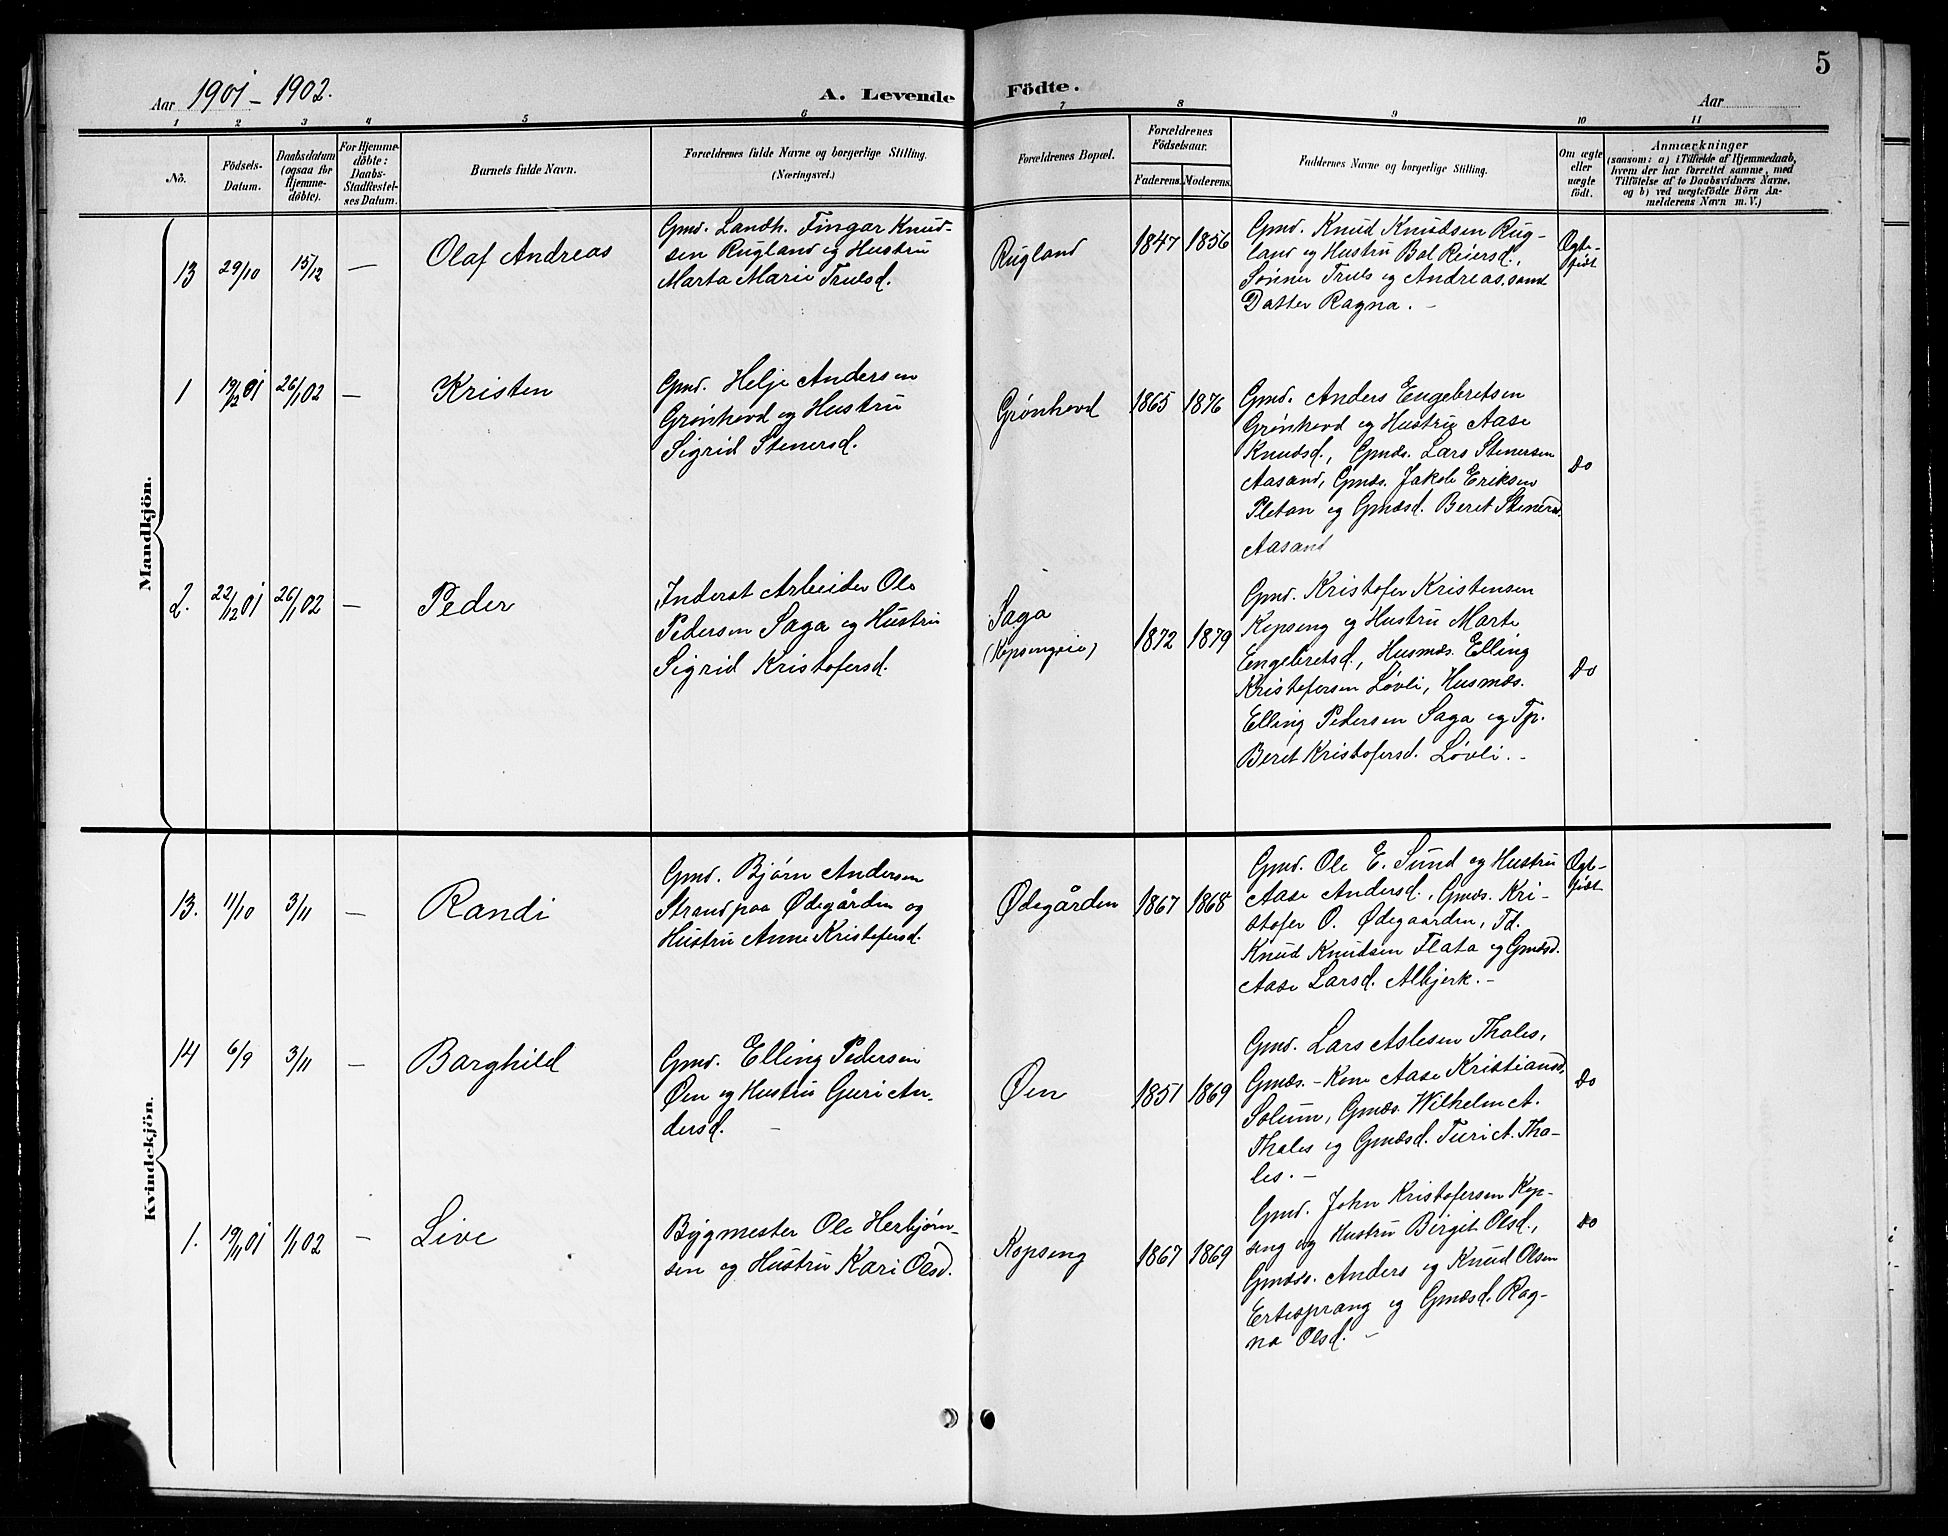 5
Aar 1901 - 1902.
A. Levende Födte.
Aar
1 2 3 4 5 6 7 8 9 10 11
No.
Födsels-
Datum.
Daabsdatum
(ogsaa for
Hjemme-
döbte).
For Hjemme-
döbte:
Daabs-
Stadfæstel-
ses Datum.
Barnets fulde Navn.
Forældrenes fulde Navne og borgerlige Stilling.
(Næringsvei.)
Forældrenes Bopæl.
Forældrenes
Födselsaar.
Faderens. Moderens.
Faddernes Navne og borgerlige Stilling.
Om ægte
eller
uægte
födt.
Anmærkninger
(saasom: a) i Tilfælde af Hjemmedaab,
hvem der har forrettet samme, med
Tilföielse af to Daabsvidners Navne,
og b) ved uægtefödte Börn An-
melderens Navn m. V.)
Mandkjön.
13 29/10 15/12 — Olaf Andreas
Gmd. Landh. Fingar Knud-
sen Rugland og Hustru
Marta Marie Trulsd.
Rugland 1847 1856
Gmd. Knud Knudsen Rug-
land og Hustru Bol Reiersd.,
Sønner Truls og Andreas, samt
Datter Ragna. -
Ægte-
født
1 19/12 01 26/1 02 — Kristen
Gmd. Helje Andersen
Grønhovd og Hustru
Sigrid Stenersd.
Grønhovd 1865 1876
Gmd. Anders Engebretsen
Grønhovd og Hustru Aase
Knudsd., Gmds. Lars Stenersen
Aasand, Gmds. Jakob Eriksen
Pletan og Gmdsd. Beret Stenersd.
Aasand
Do
2. 22/12 01 26/1 02 — Peder
Inderst Arbeider Ole
Pedersen Saga og Hustru
Sigrid Kristofersd.
Saga
(Kopsengeie)
1872 1879
Gmd. Kristofer Kristensen
Kopseng og Hustru Marte
Engebretsd., Husmds. Elling
Kristofersen Løvli, Husmds.
Elling Pedersen Saga og Tp.
Beret Kristofersd. Løvli. -
Do
Kvindekjön.
13. 11/10 3/11 — Randi
Gmd. Bjørn Andersen
Strand paa Ødegården og
Hustru Anne Kristofersd.
Ødegården 1867 1868
Gmd. Ole E. Sund og Hustru
Aase Andersd., Gmds. Kri-
stofer O. Ødegaarden, Td.
Knud Knudsen Flata og Gmdsd.
Aase Larsd. Albjerk. -
Ægte-
født
14 6/9 3/11 — Barghild
Gmd. Elling Pedersen
Øen og Hustru Guri An-
dersd. -
Øen 1851 1869
Gmd. Lars Aslesen Thales,
Gmds.-Kone Aase Kristiansd.
Solum, Gmds. Wilhelm A.
Thales og Gmdsd. Turi A. Tha-
les. -
Do
1. 19/11 01 1/1 02 — Live
Bygmester Ole Herbjørn-
sen og Hustru Kari Olsd.
Kopseng 1867 1869
Gmd. John Kristofersen Kop-
seng og Hustru Birgit Olsd.,
Gmdss. Anders og Knud Olsen
Ertesprang og Gmdsd. Rag-
na Olsd. -
Do